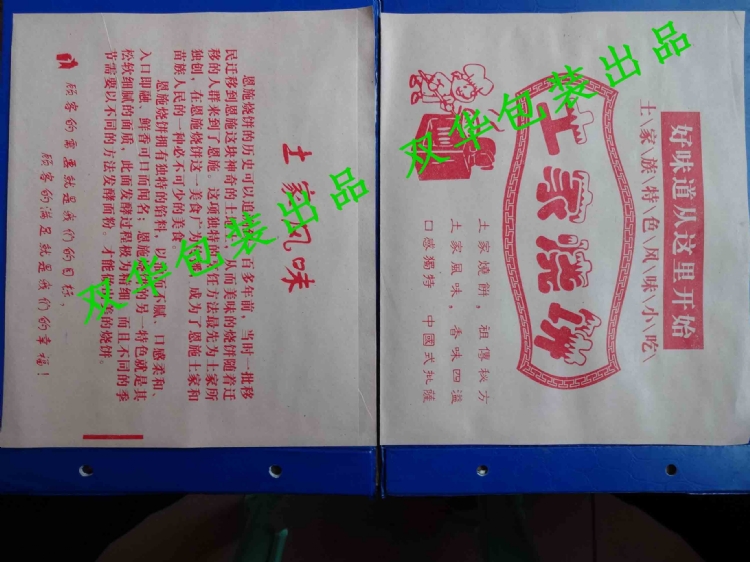 好味道从这里开始
土\家\族\特\色\风\味\小\吃\
土家烧饼
土家燒餅，祖傳秘方
土家風味，香味四溢
口感獨特 中國式批薩
双华包装出品
土家风味
恩施烧饼的历史可以追
百多年前，当时一批移
民迁移到恩施这块神奇的土
从而美味的烧饼随着迁
移的人群来到了恩施，这项独特的
任方法最先为土家所
独创，在恩施烧饼这一美食广为
成为了恩施土家和
苗族人民的一种必不可少的美食。
恩施烧饼拥有独特的馅料，以
而不腻、口感柔和、
入口即融，鲜香可口而闻名，恩施
的另一特色就是其
松软细腻的面质，此面发酵过程极为精细，而且不同的季
节需要以不同的方法发酵面粉。才能
美的烧饼。
顾客的需要就是我们的目标，
顾客的满足就是我们的幸福！
双华包装出品